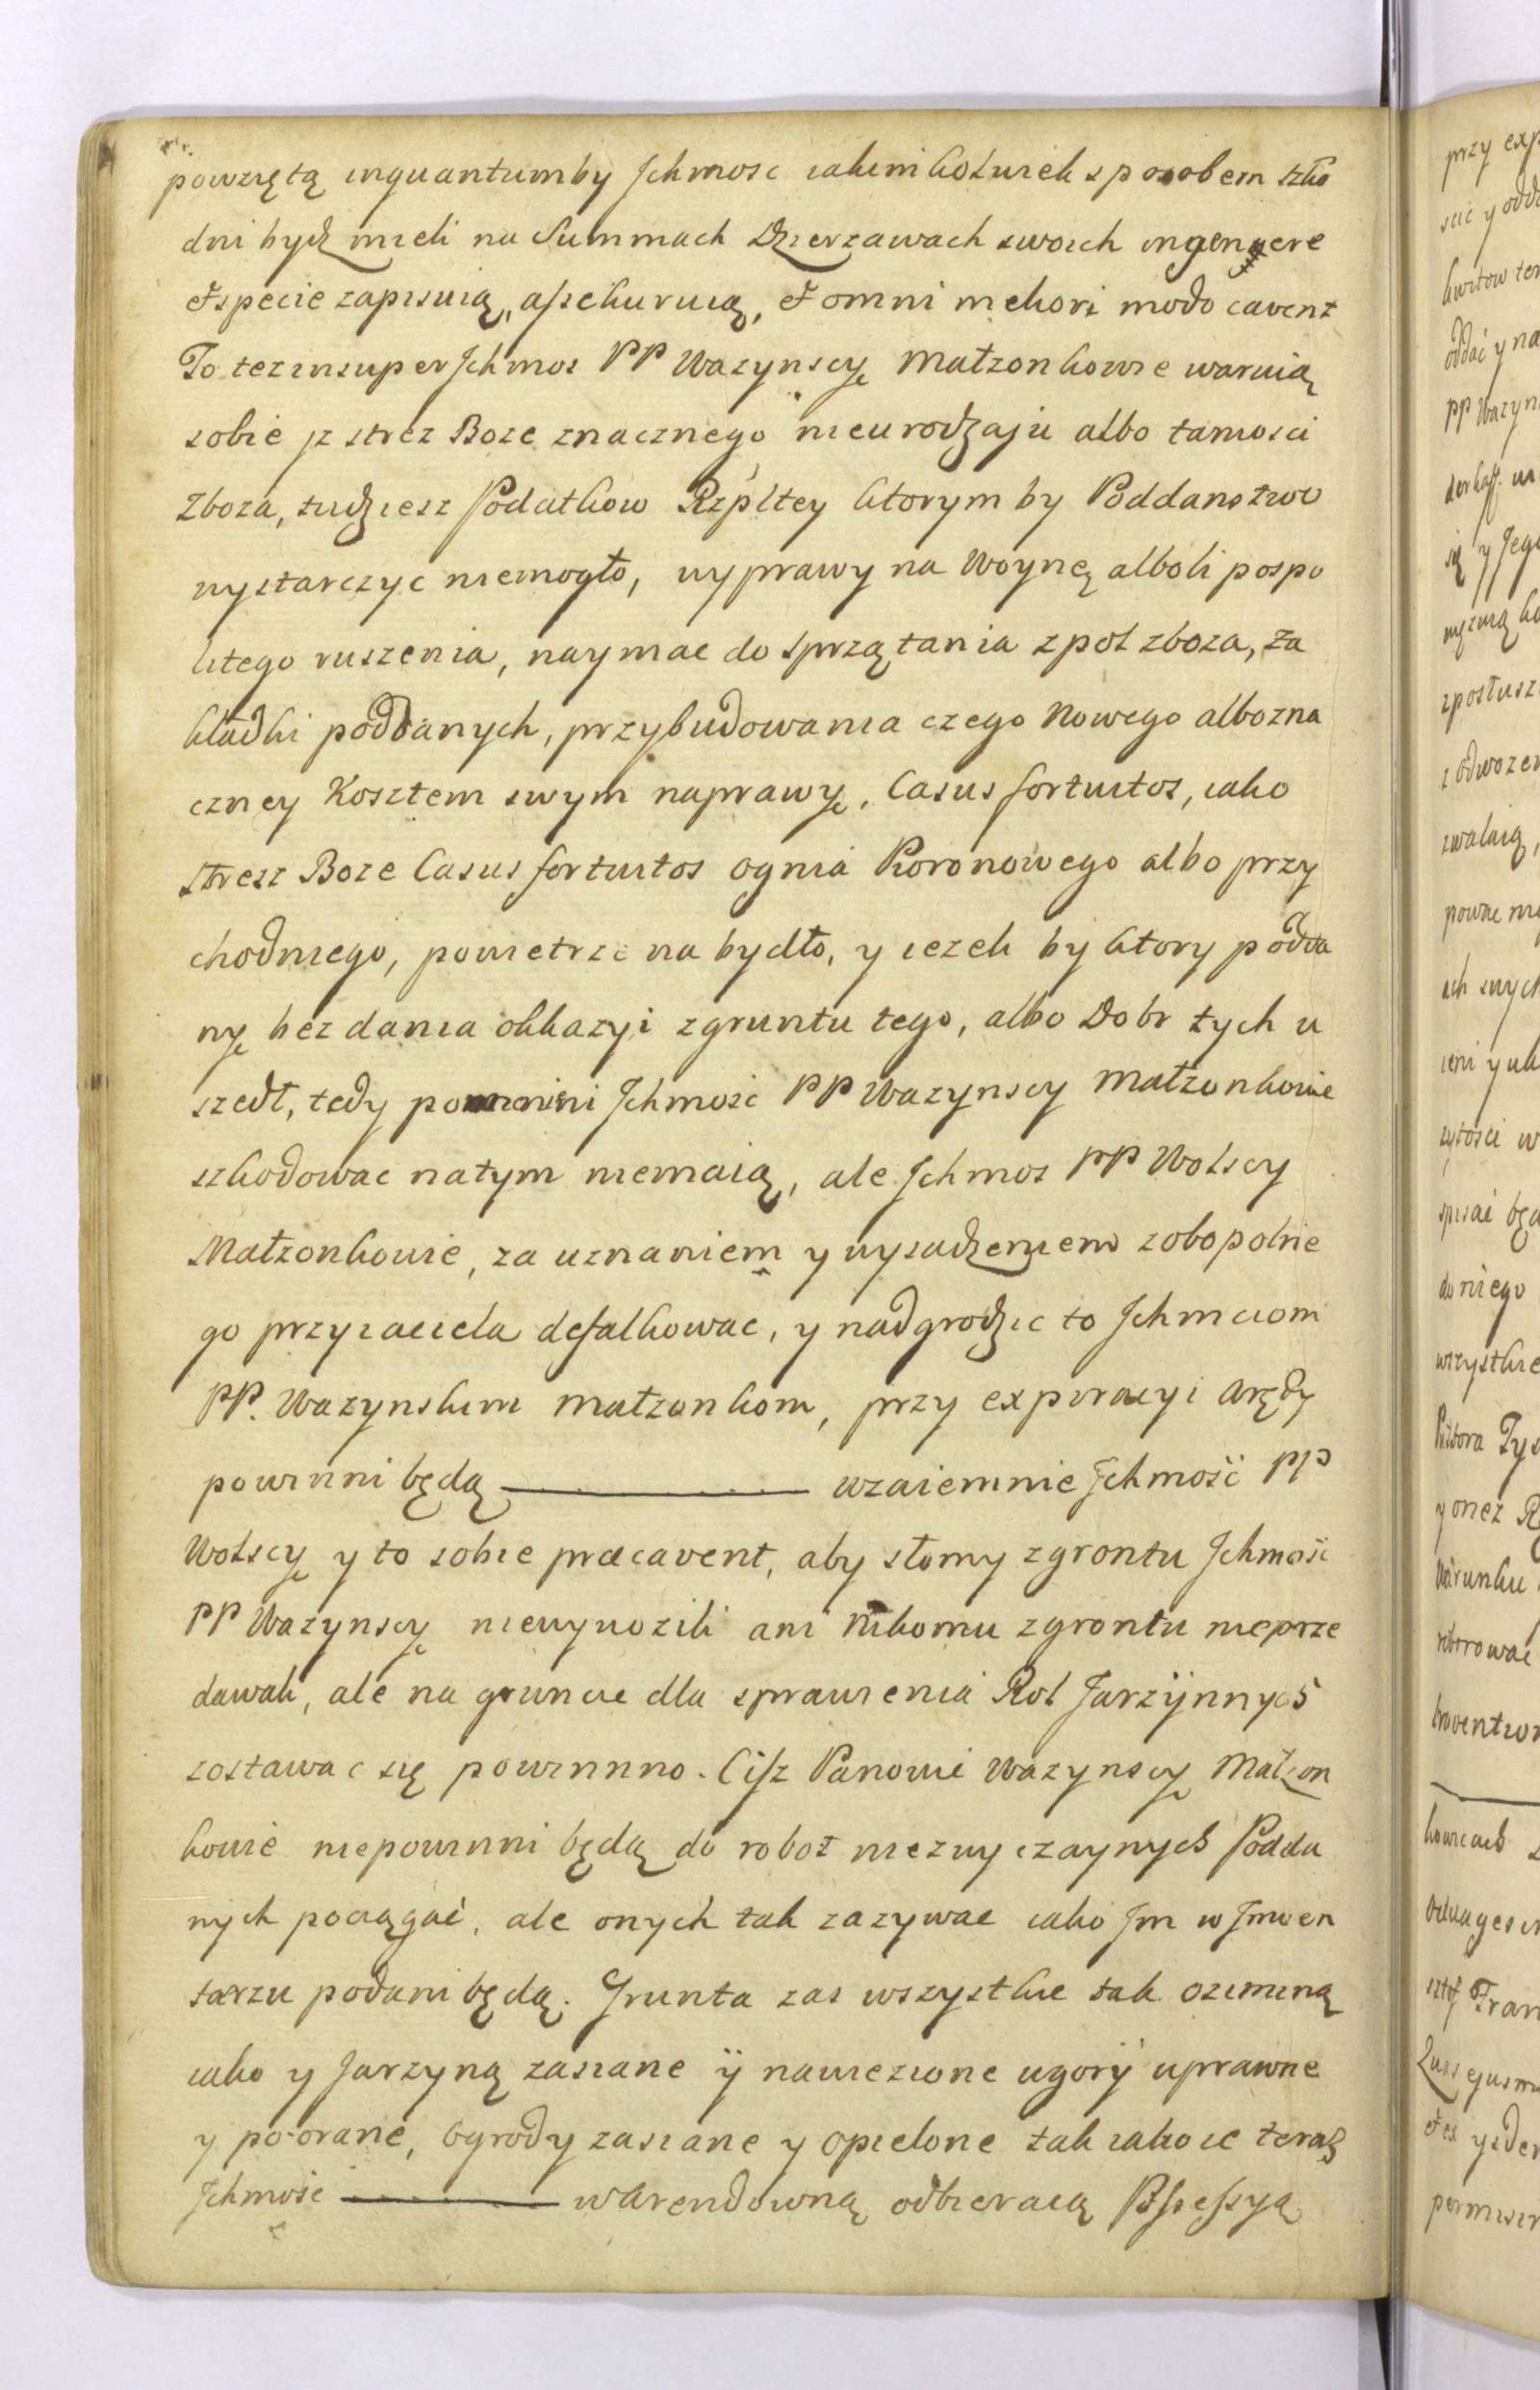 powziętą inquantumby Ichmosc iakimkolwiek sposobem szko
dni bydz mieli na Summach Dzierzawach swoich ingenere
et specie zapisuią, assekuruią, et omni meliori modo cavent
To tez insuper Ichmos PP Wazynscy Małzonkowie waruią
sobie iz strzez Boze znacznego nieurodzaju albo taniosci
Zboza, tudziesz Podatkow Rzpltey ktorym by Poddanstwo
wystarczyc niemogło, wyprawy na Woynę alboli pospo
litego ruszenia, naymac do sprzątania z pol zboza, za
kładki poddanych, przybudowania czego Nowego albo zna
czney Kosztem swym naprawy, Casus fortuitos, iako
strzesz Boze Casus fortuitos ognia Pioronowego albo przy
chodniego, powietrze na bydło, y iezeli by ktory podda
ny bez dania okkazyi z gruntu tego, albo Dobr tych u
szedł, tedy powinni Ichmosc PP Wazynscy Małzonkowie
szkodowac natym niemaią, ale Ichmos PP Wolscy
Małzonkowie, za uznaniem y wysadzeniem zobopolne
go przyiaciela defalkowac, y nadgrodzic to Ichmciom
PP. Wazynskim Małzonkom, przy expiracyi Arędy
powinni będą ——— wzaiemnie Ichmość PP
Wolscy y to sobie præcavent, aby słomy zgrontu Ichmość
PP Wazynscy niewywozili ani Nikomu zgrontu nieprze
dawali, ale na gruncie dla sprawienia Rol Jarzÿnnych
zostawac się powinnno. Cisz Panowie Wazynscy Małzon
kowie niepowinni będą do robot niezwyczaynych Podda
nych pociągać, ale onych tak zazywac iako Im w Inwen
tarzu podani będą. Grunta zas wszystkie tak oziminą
iako y Jarzyną zasiane ÿ nawiezione ugorÿ uprawne
y po-orane, Ogrody zasiane y opielone tak iako ie teraz
Ichmość ——— w Arendowną odbieraią Possessyą